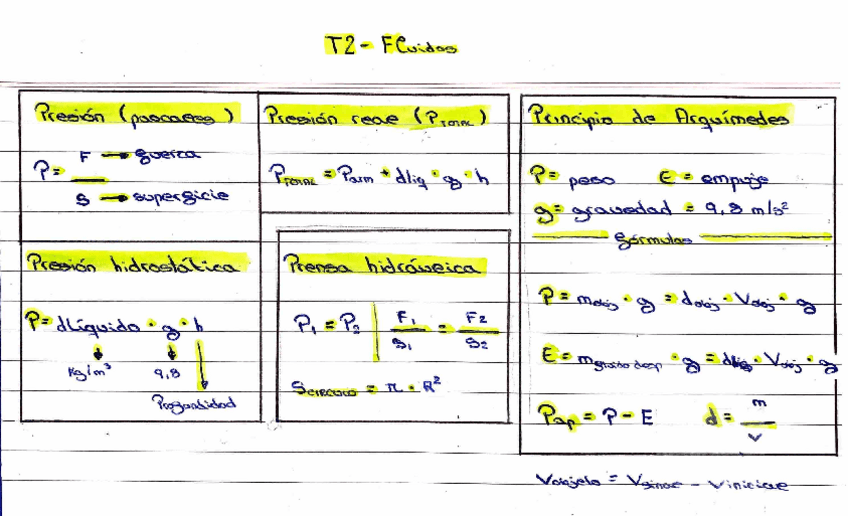 T2 - Fluidos
Presión (pascales)
P = F → fuerza
S → superficie
Presión real (P TOTAL)
P TOTAL = Patm + dliq · g · h
Principio de Arquímedes
P = peso E = empuje
g = gravedad = 9,8 m/s²
fórmulas
P = mobj · g = dobj · Vobj · g
E = m · g = dliq · Vobj · g
Pap = P - E d = m
v
Presión hidrostática
P = dlíquido · g · h
Kg/m³ 9,8
Profundidad
Prensa hidráulica
P₁ = P₂ F₁ = F₂
S₁ S₂
S CIRCULO = π · R²
Vobjeto = Vfinal - Vinicial